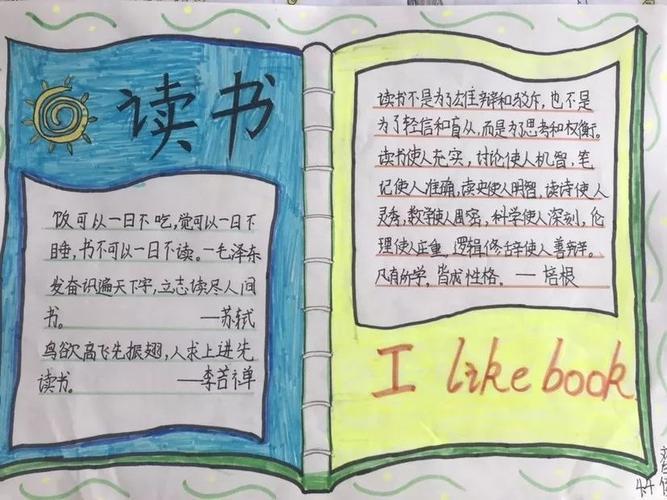 读书
饭可以一日不吃,觉可以一日不
睡,书不可以一日不读。—毛泽东
发奋识遍天下字,立志读尽人间
书。 —苏轼
鸟欲高飞先振翅,人求上进先
读书。 —李苦禅
读书不是为了雄辩和驳斥,也不是
为了轻信和盲从,而是为了思考和权衡。
读书使人充实,讨论使人机智,笔
记使人准确,读史使人明智,读诗使人
灵秀,数学使人周密,科学使人深刻,伦
理使人庄重,逻辑修辞学使人善辩。
凡有所学,皆成性格。—培根
I like book